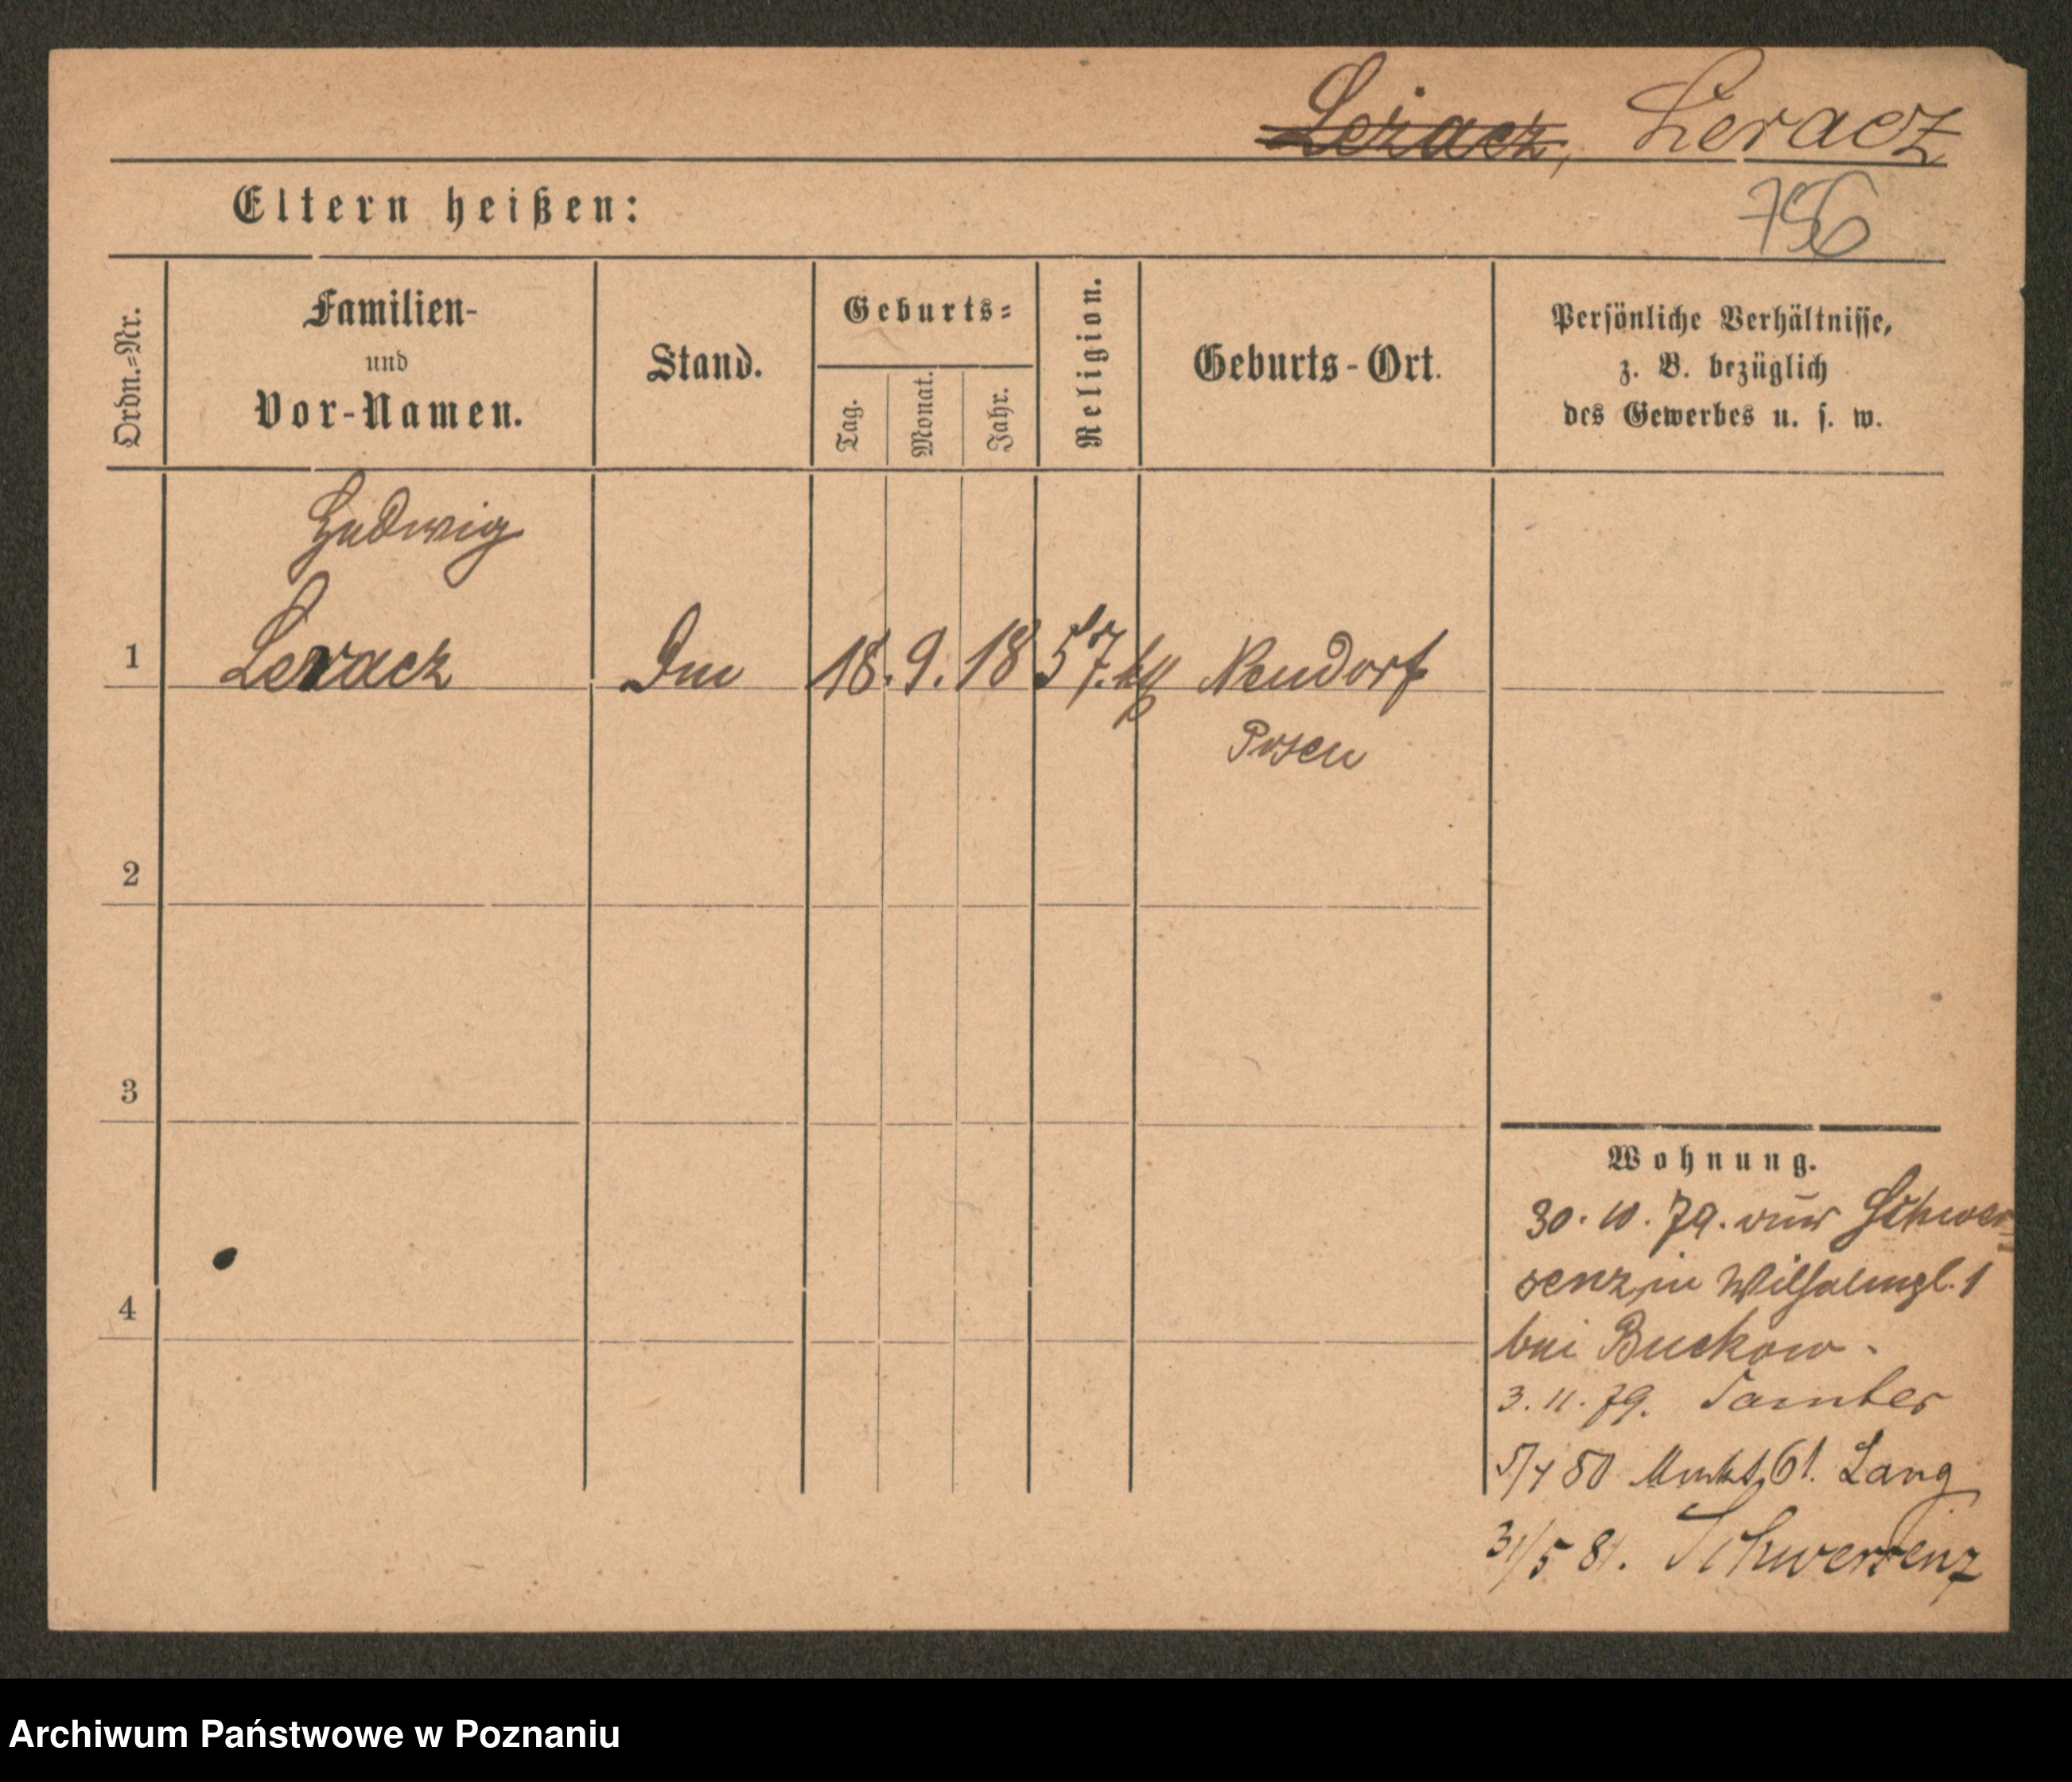 Leracz, Leracz
756
Eltern heißen:
Ordn.-Nr.
Familien-
und
Vor-Namen.
Stand.
Geburts-
Tag.
Monat.
Jahr.
Religion.
Geburts-Ort.
Persönliche Verhältnisse,
z. B. bezüglich
des Gewerbes u. s. w.
Ludwig
1 Leracz 18. 9. 18 57. Neudorf
Posen
2
3
4
Wohnung.
30. 10. 79. aus Schwer-
senz, in Wilhelmspl. 1
bei Buckow.
3. 11. 79. Samter
5/7 80 Markt 61. Lang
31/5 81. Schwersenz
Archiwum Państwowe w Poznaniu